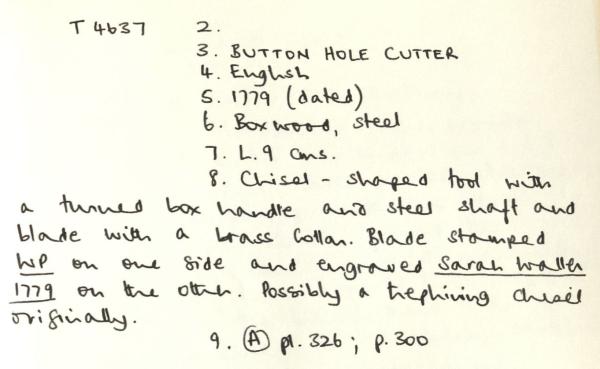 T 4637 2.
3. BUTTON HOLE CUTTER
4. English
5. 1779 (dated)
6. Boxwood, steel
7. L. 9 cms.
8. Chisel-shaped tool with
a turned box handle and steel shaft and
blade with a brass collar. Blade stamped
WP on one side and engraved Sarah Waller
1779 on the other. Possibly a trephining chisel
originally.
9. (A) pl. 326; p. 300